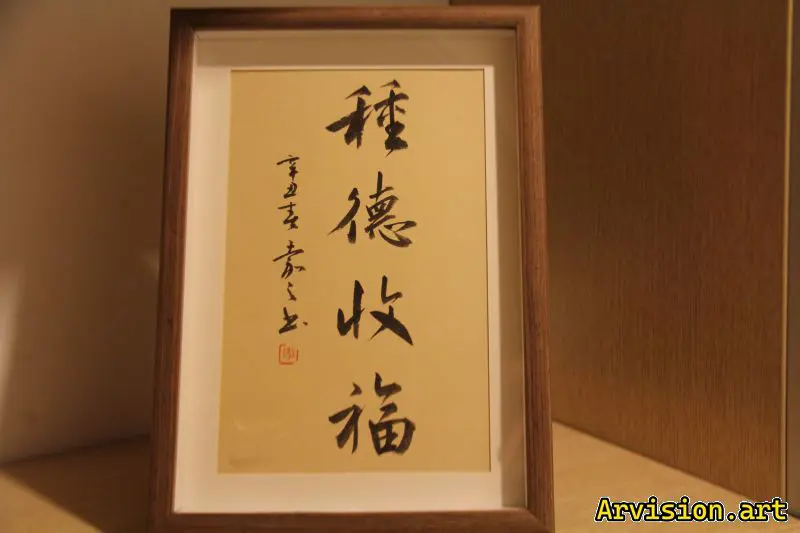 種德收福
辛丑春嘉之书
Arvision.art